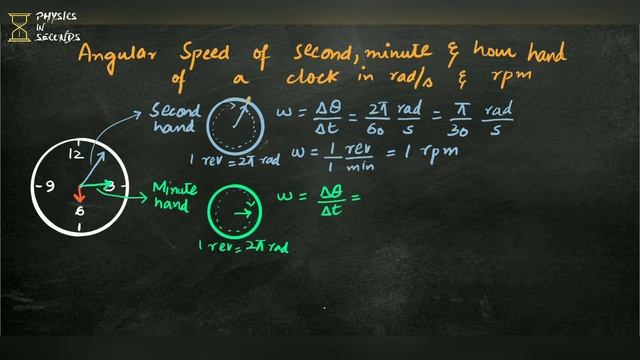 PHYSICS
IN
SECONDS
Angular Speed of second, minute & hour hand
of a clock in rad/s & rpm
Second
hand
1 rev = 2π rad
ω = Δθ/Δt = 2π/60 rad/s = π/30 rad/s
ω = 1/1 rev/min = 1 rpm
12
9
3
6
Minute
hand
1 rev = 2π rad
ω = Δθ/Δt =